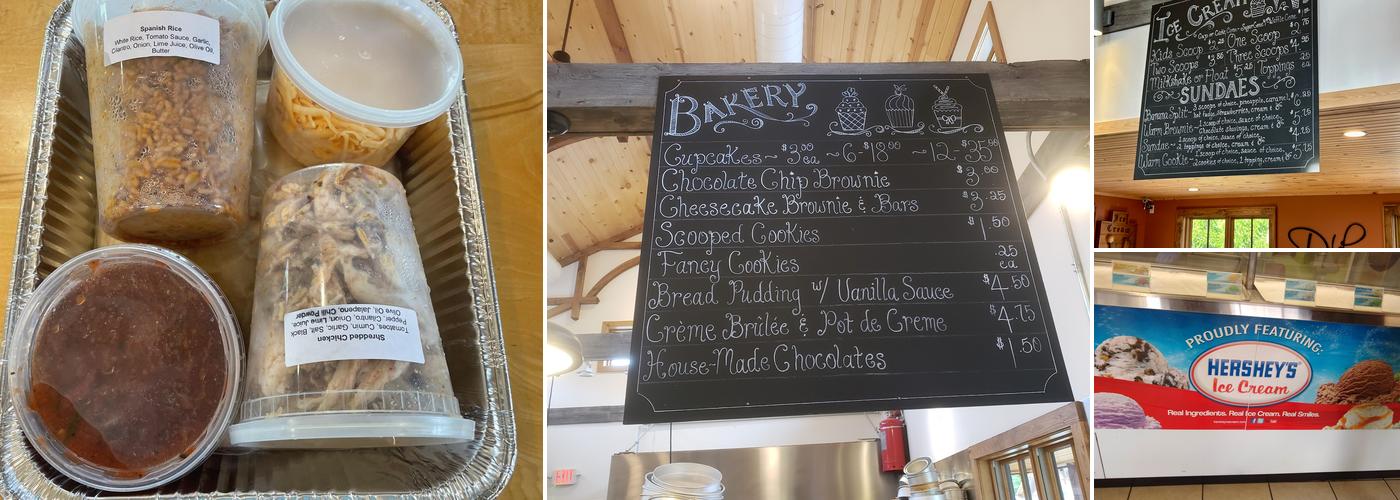 Spanish Rice
White Rice, Tomato Sauce, Garlic,
Cilantro, Onion, Lime Juice, Olive Oil,
Butter
Shredded Chicken
Tomatoes, Cumin, Garlic, Salt, Black
Pepper, Cilantro, Onion, Lime Juice,
Olive Oil, Jalapeno, Chili Powder
BAKERY
Cupcakes ~ $3.00 ea ~ 6- $18.00 ~ 12- $35.00
Chocolate Chip Brownie $3.00
Cheesecake Brownie & Bars $3.25
Scooped Cookies $1.50
Fancy Cookies .25 ea
Bread Pudding w/ Vanilla Sauce $4.50
Crème Brûlée & Pot de Creme $4.75
House-Made Chocolates $1.50
ICE CREAM
Kids Scoop One Scoop
Two Scoops Three Scoops
Milkshake or Float Toppings
SUNDAES
Banana Split- 3 scoops of choice, pineapple, caramel
hot fudge, strawberries, cream &
Warm Brownie- chocolate shavings, cream &
1 scoop of choice, sauce of choice,
Sundae- 2 toppings of choice, cream &
1 scoop of choice, sauce of choice,
Warm Cookie- 2 cookies of choice, 1 topping, cream &
Ice
Cream
PROUDLY FEATURING:
HERSHEY'S
Ice Cream
Real Ingredients. Real Ice Cream. Real Smiles.